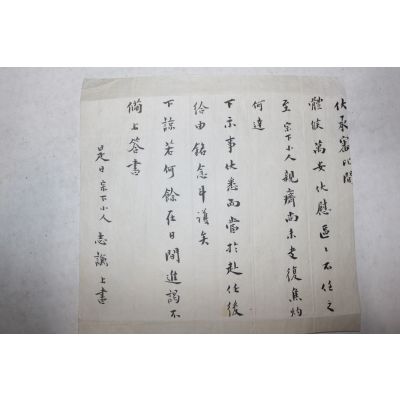 伏承審此間
體候萬安伏慰區〻不任之
至宗下小人親齊尚未夬復焦灼
何達
下示事伏悉而當於赴任後
給由銘念斗護矣
下諒若何餘在日間進謁不
備上答書
是日宗下小人志謙上書